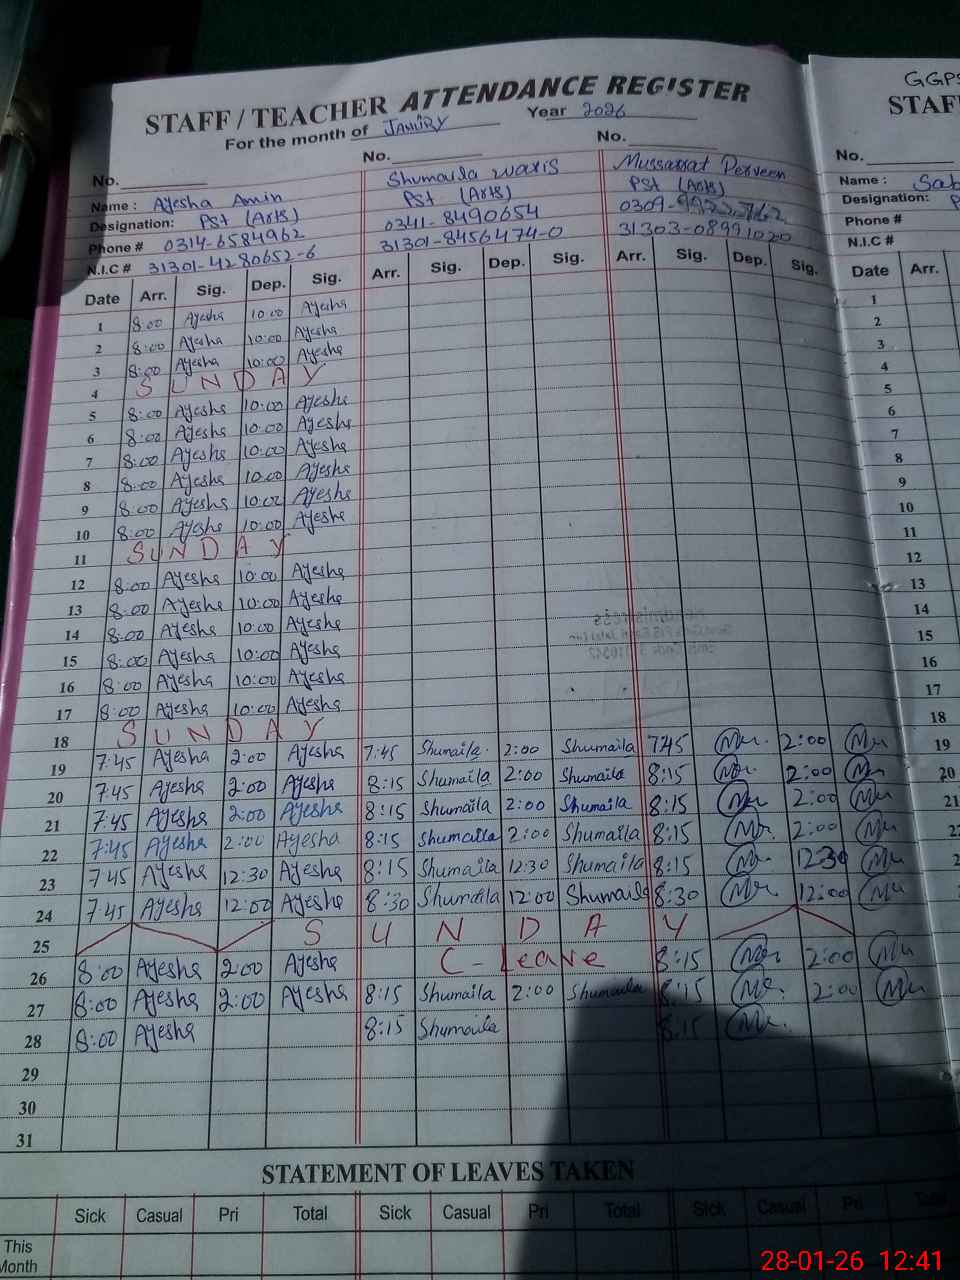 GGPS
STAFF / TEACHER ATTENDANCE REGISTER
STAF
For the month of JANURY Year 2026
No. No. No. No.
Name : Ayesha Amin Shumaila waris Mussarrat Perveen Name : Sab
Designation: PST (Arts) PST (Arts) PST (Arts) Designation: P
Phone # 0314-6584962 0341-8490654 0309- Phone #
N.I.C # 31301-4280652-6 31301-8456474-0 31303-08991020 N.I.C #
Date Arr. Sig. Dep. Sig. Arr. Sig. Dep. Sig. Arr. Sig. Dep. Sig. Date Arr.
1 8:00 Ayesha 10:00 Ayesha 1
2 8:00 Ayesha 10:00 Ayesha 2
3 8:00 Ayesha 10:00 Ayesha 3
4 SUNDAY 4
5 8:00 Ayesha 10:00 Ayesha 5
6 8:00 Ayesha 10:00 Ayesha 6
7 8:00 Ayesha 10:00 Ayesha 7
8 8:00 Ayesha 10:00 Ayesha 8
9 8:00 Ayesha 10:00 Ayesha 9
10 8:00 Ayesha 10:00 Ayesha 10
11 SUNDAY 11
12 8:00 Ayesha 10:00 Ayesha 12
13 8:00 Ayesha 10:00 Ayesha 13
14 8:00 Ayesha 10:00 Ayesha 14
15 8:00 Ayesha 10:00 Ayesha 15
16 8:00 Ayesha 10:00 Ayesha 16
17 8:00 Ayesha 10:00 Ayesha 17
18 SUNDAY 18
19 7:45 Ayesha 2:00 Ayesha 7:45 Shumaila 2:00 Shumaila 7:45 Mu 2:00 Mu 19
20 7:45 Ayesha 2:00 Ayesha 8:15 Shumaila 2:00 Shumaila 8:15 Mu 2:00 Mu 20
21 7:45 Ayesha 2:00 Ayesha 8:15 Shumaila 2:00 Shumaila 8:15 Mu 2:00 Mu 21
22 7:45 Ayesha 2:00 Ayesha 8:15 Shumaila 2:00 Shumaila 8:15 Mu 2:00 Mu 22
23 7:45 Ayesha 12:30 Ayesha 8:15 Shumaila 12:30 Shumaila 8:15 Mu 12:30 Mu 2
24 7:45 Ayesha 12:00 Ayesha 8:30 Shumaila 12:00 Shumaila 8:30 Mu 12:00 Mu 2
25 SUNDAY
26 8:00 Ayesha 2:00 Ayesha C-Leave 8:15 Mu 2:00 Mu
27 8:00 Ayesha 2:00 Ayesha 8:15 Shumaila 2:00 Shumaila 8:15 Mu 2:00 Mu
28 8:00 Ayesha 8:15 Shumaila 8:15 Mu
29
30
31
STATEMENT OF LEAVES TAKEN
Sick Casual Pri Total Sick Casual Pri Total Sick Casual Pri Total
This
Month
28-01-26 12:41